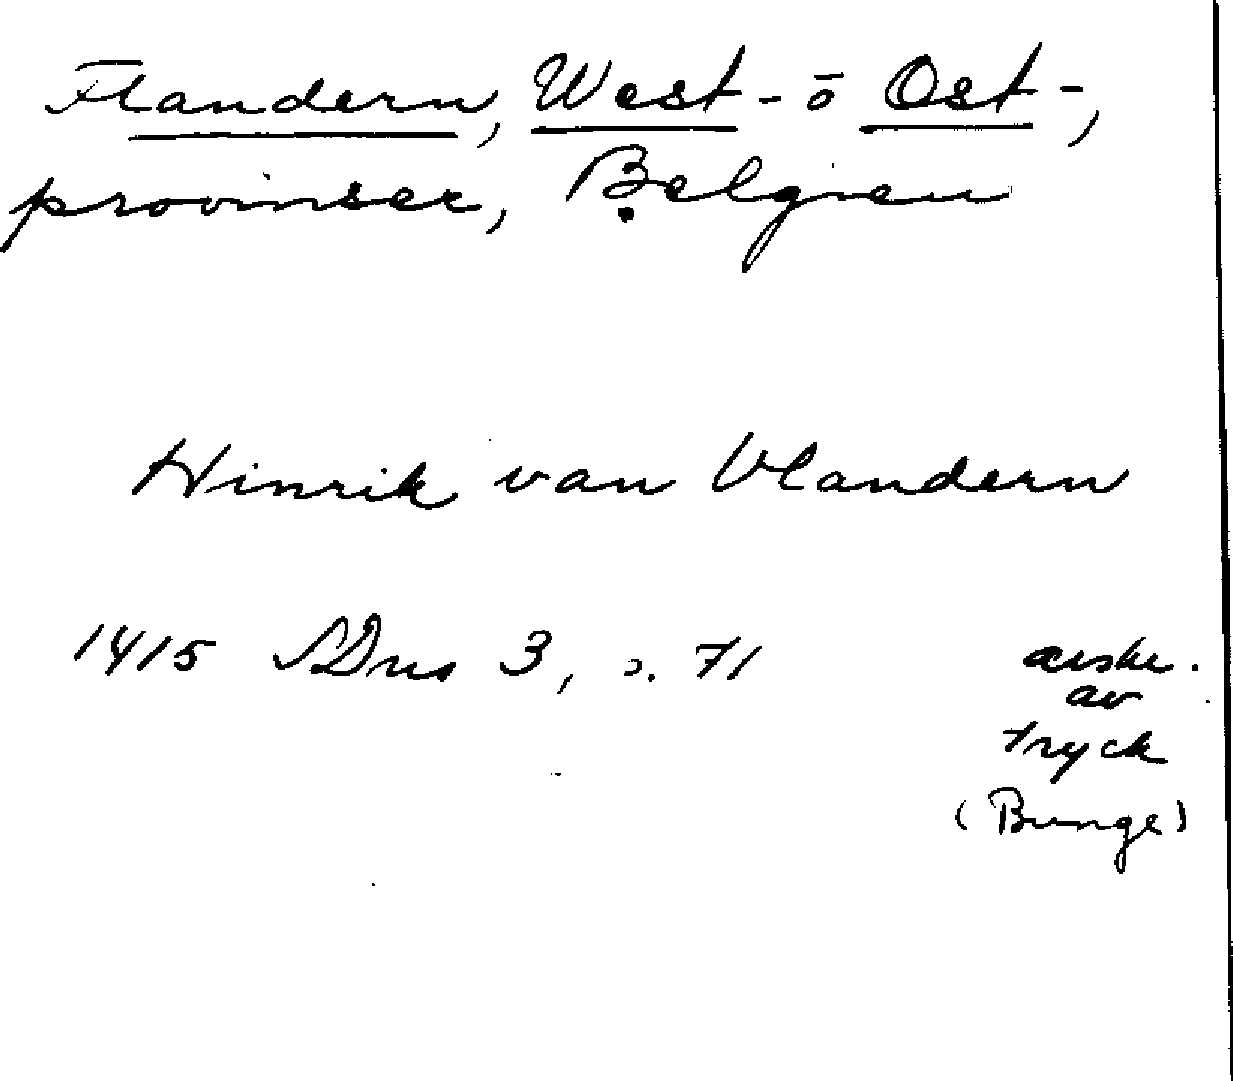 Flandern, West- ō Ost-,
provinser, Belgien
Hinrik van Vlandern
1415 SDns 3, s. 71
avskr.
av
tryck
(Bunge)